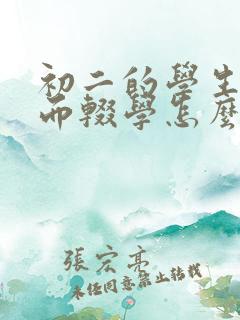 初二的學生
而輟學怎麼
張宏亮
未經同意禁止轉載